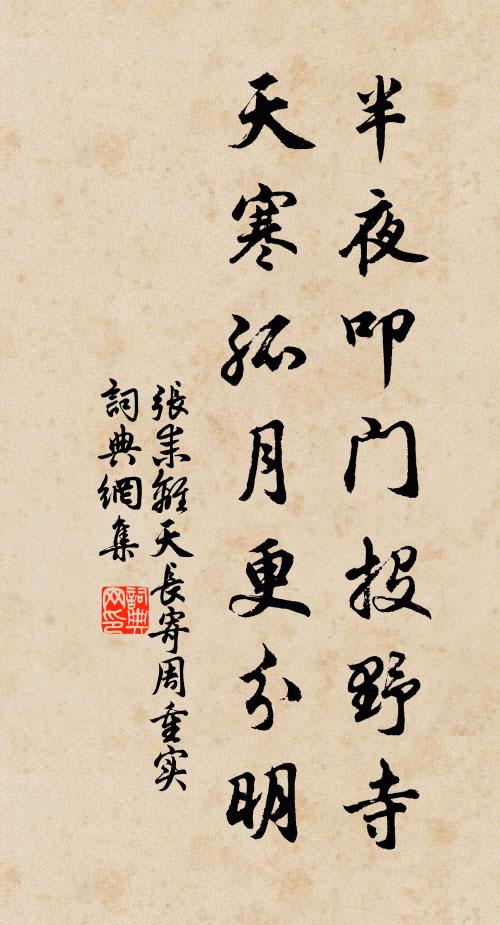 半夜叩门投野寺
天寒孤月更分明
張耒離天長寄周重实
詞典網集
詞典网印